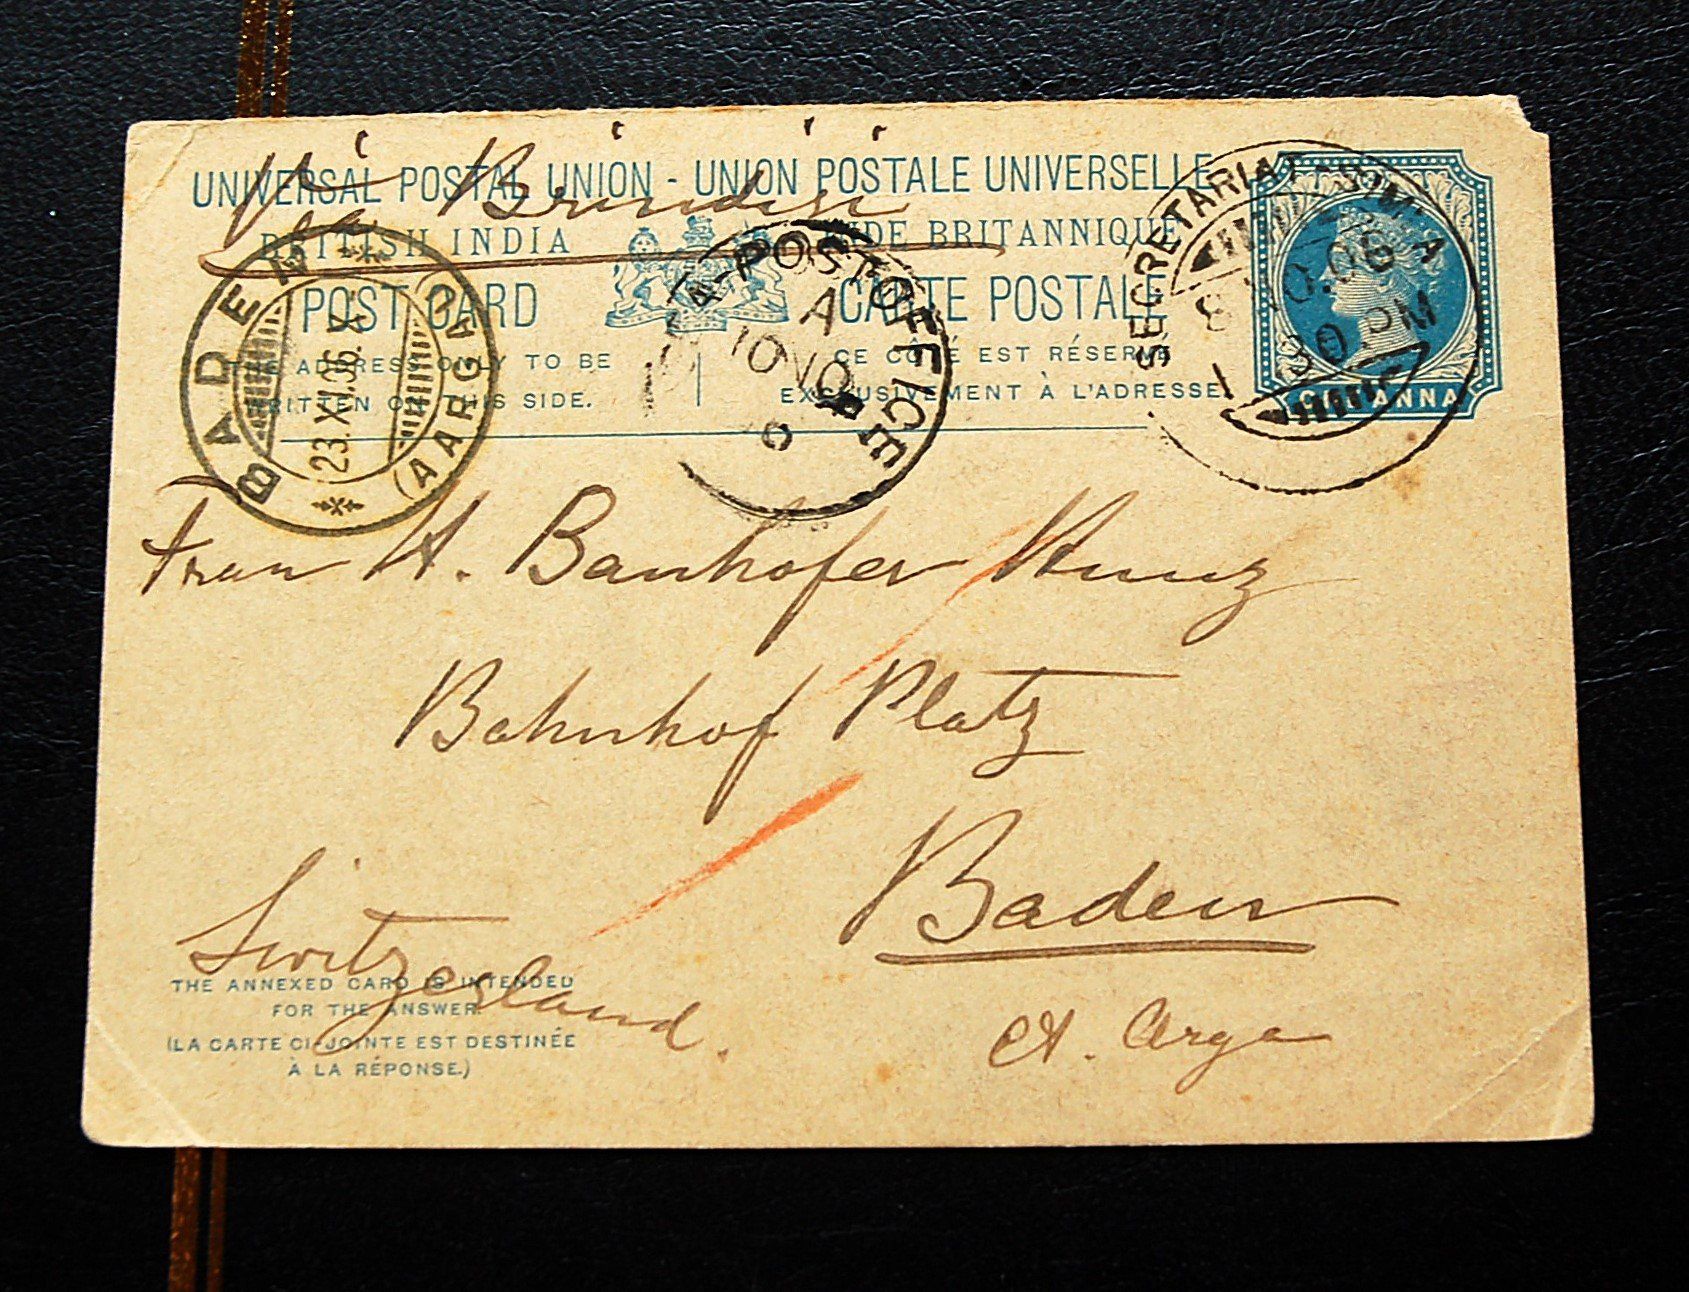 Via Brindisi
UNIVERSAL POSTAL UNION - UNION POSTALE UNIVERSELLE
BRITISH INDIA
INDE BRITANNIQUE
POST CARD
CARTE POSTALE
THE ADDRESS ONLY TO BE
WRITTEN ON THIS SIDE.
CE CÔTÉ EST RÉSERVÉ
EXCLUSIVEMENT À L'ADRESSE
ONE ANNA
BADEN
(AARGAU)
23.XI.96.X.
SEA-POST OFFICE
A
10 NO
SECRETARIAT
1 30 PM
Frau A. Banhofer Kunz
Bahnhof Platz
Baden
Ct. Arga
Switzerland.
THE ANNEXED CARD IS INTENDED
FOR THE ANSWER.
(LA CARTE CI-JOINTE EST DESTINÉE
À LA RÉPONSE.)